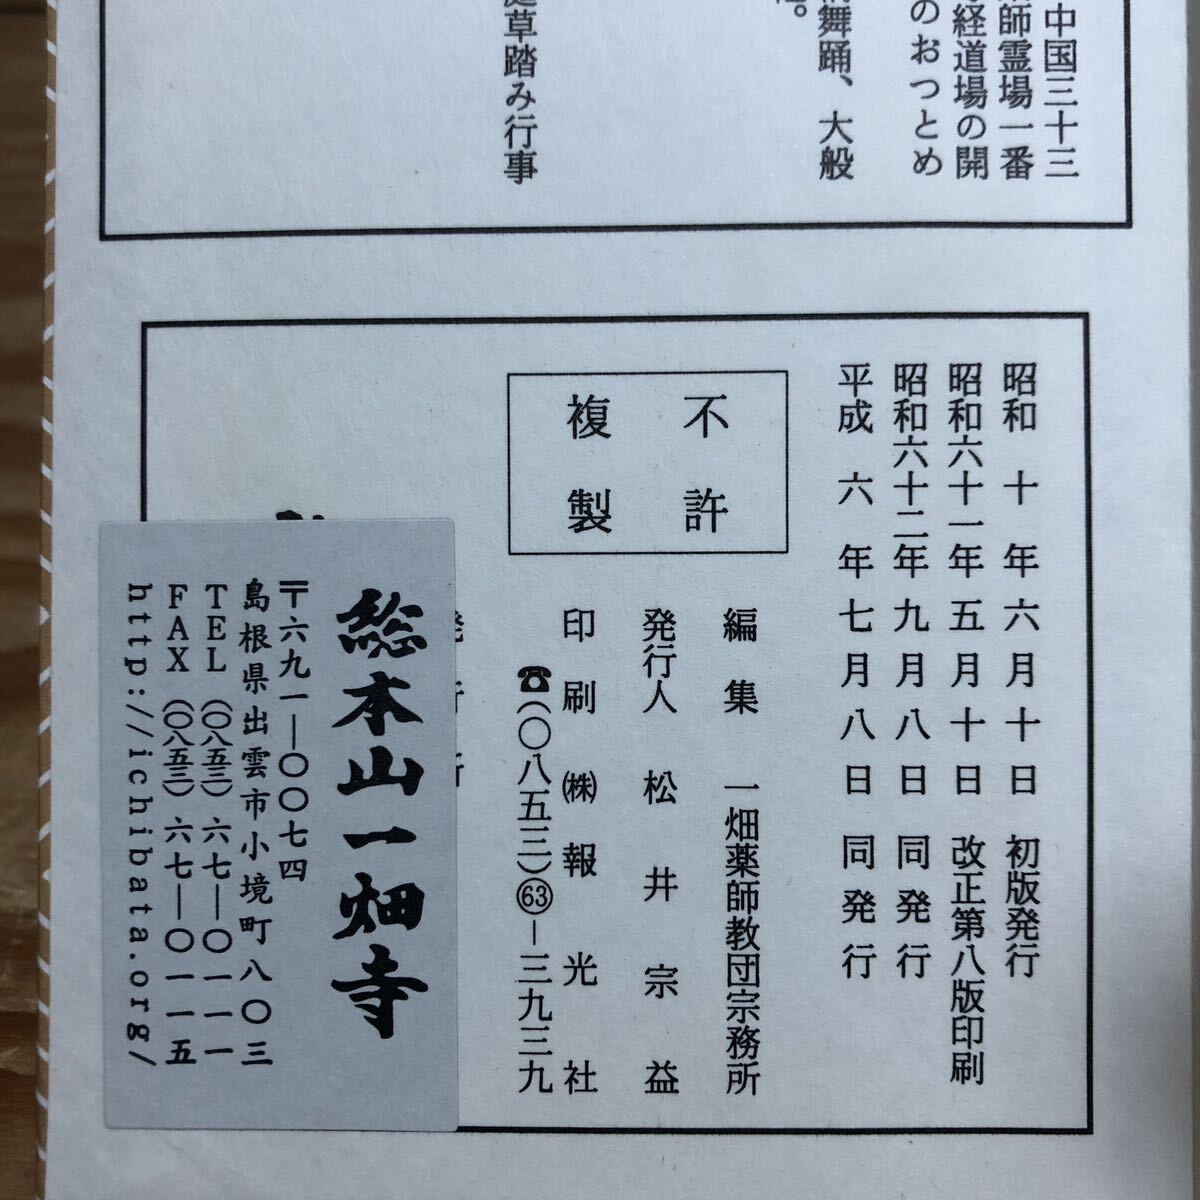 中国三十三
師霊場一番
経道場の開
のおつとめ
舞踊、大般
草踏み行事
昭和十年六月十日 初版発行
昭和六十一年五月十日 改正第八版印刷
昭和六十二年九月八日 同発行
平成六年七月八日 同発行
不許
複製
編集 一畑薬師教団宗務所
発行人 松井宗益
印刷 ㈱報光社
☎(〇八五三)㊿㊿
総本山一畑寺
〒六九一―〇〇七四
島根県出雲市小境町八〇三
TEL (〇八五三) 六七―〇一一一
FAX (〇八五三) 六七―〇一一五
http://ichibata.org/